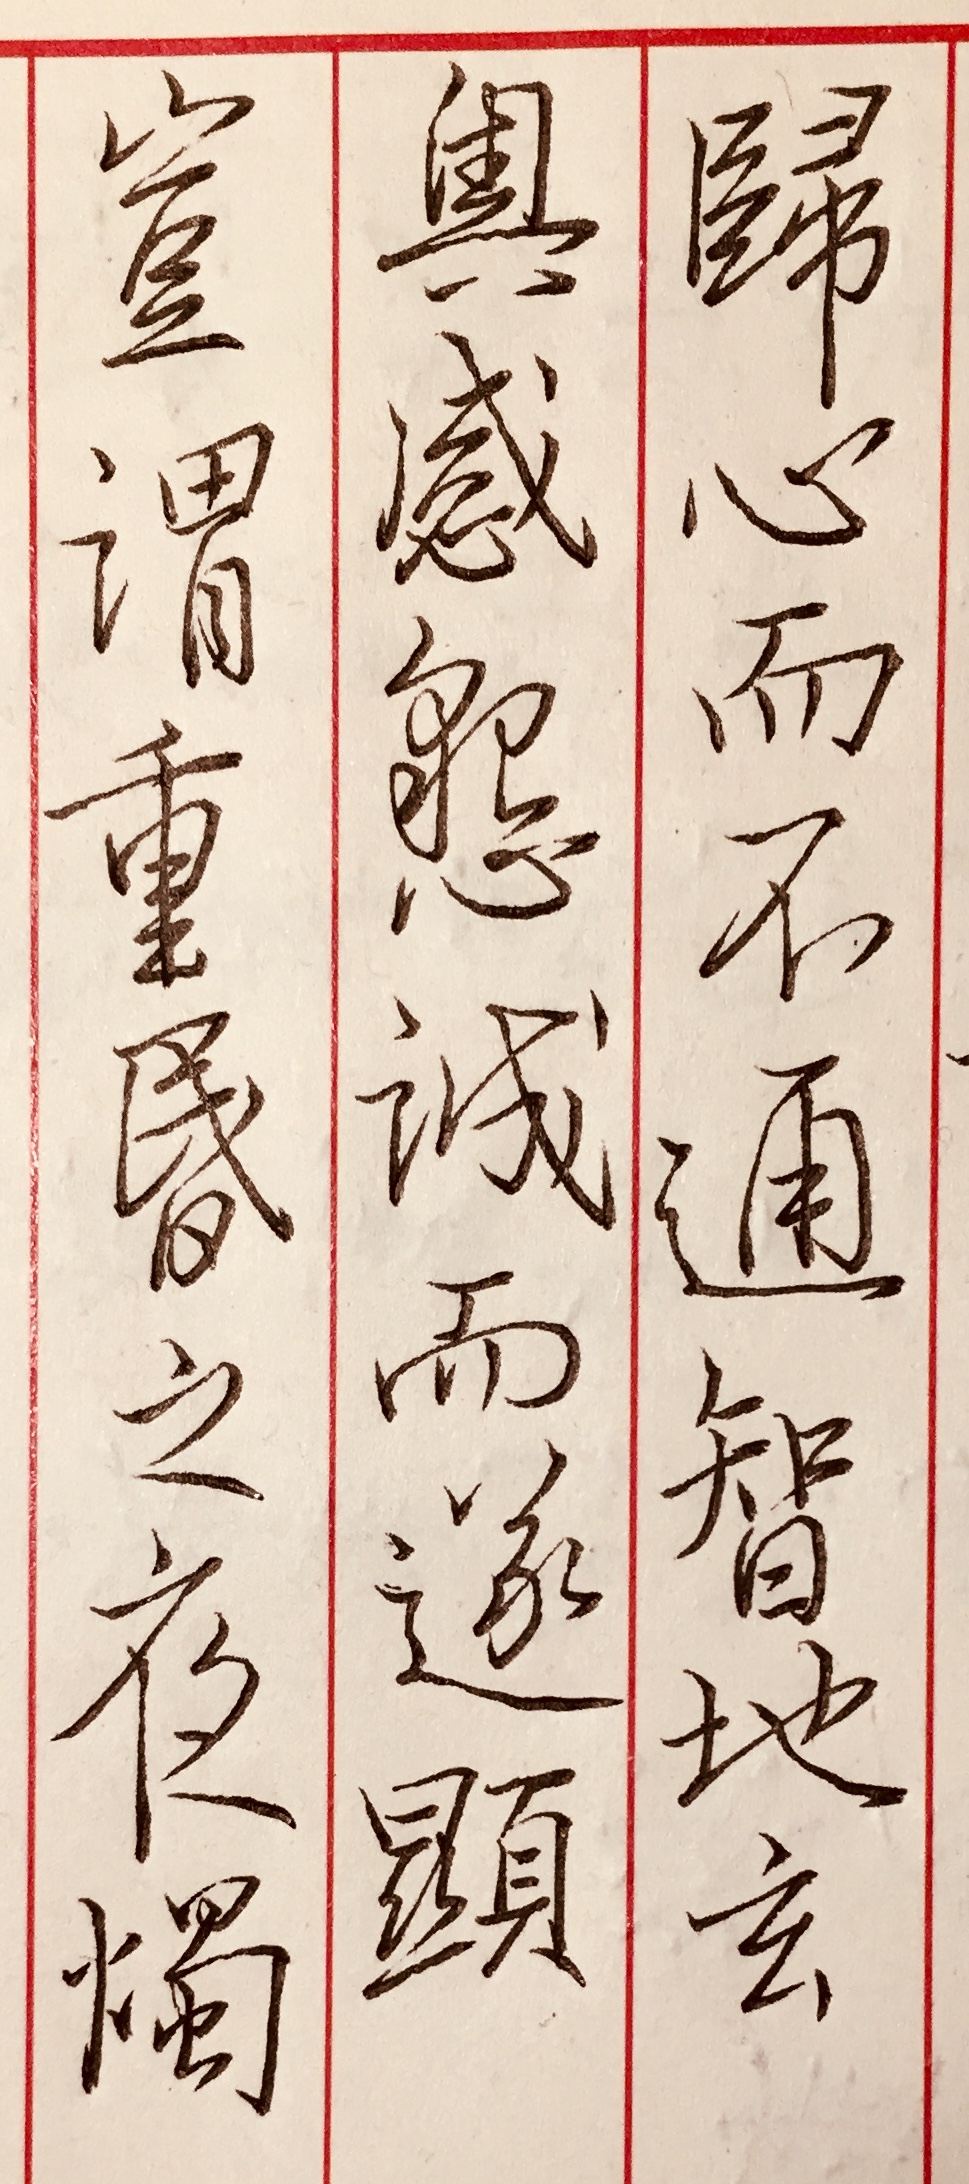 歸心而不通智地玄
奧感懇誠而遂顯
豈謂重昏之夜燭